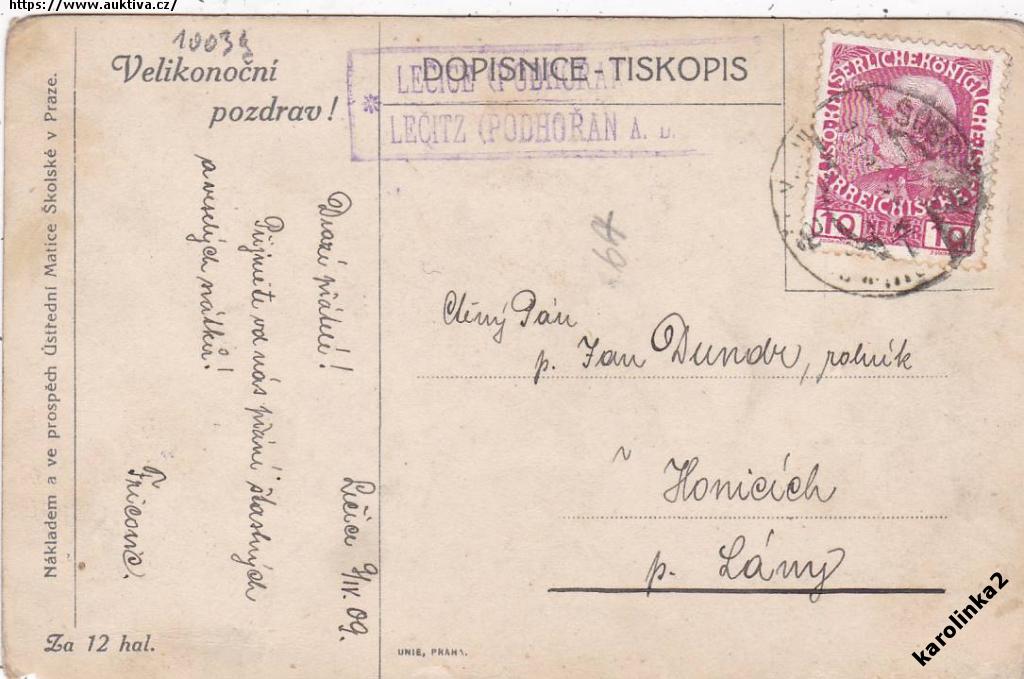 https://www.auktiva.cz/
Velikonoční
pozdrav!
DOPISNICE - TISKOPIS
LEČICE (PODHOŘAN
LEČITZ (PODHOŘAN A. D.
KAISERLICHEKÖNIGLICHE
ÖSTERREICHISCHE
10 HELLER 10
Nákladem a ve prospěch Ústřední Matice Školské v Praze.
Lečice 9/IV. 09.
Drazí přátelé!
Přijměte od nás přání šťastných
a veselých svátků!
64
Ctěný Pán
p. Jan Dundr, rolník
v Honicích
p. Lány
Za 12 hal.
UNIE, PRAHA.
karolinka2